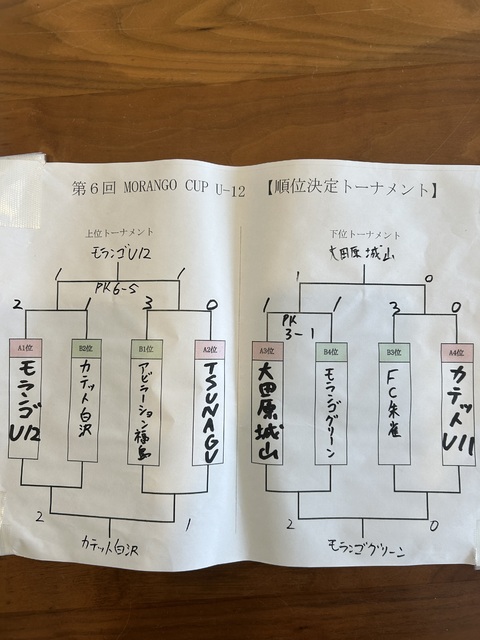 第6回 MORANGO CUP U-12 【順位決定トーナメント】
上位トーナメント
モランゴU12
1 1
PK6-5
2 1 3 0
A1位 B2位 B1位 A2位
モランゴU12
カテット白沢
アビラーション福島
TSUNAGU
2 1
カテット白沢
下位トーナメント
大田原城山
1 0
1 1 3 0
PK
3-1
A3位 B4位 B3位 A4位
大田原城山
モランゴグリーン
FC朱雀
カテットU11
2 0
モランゴグリーン